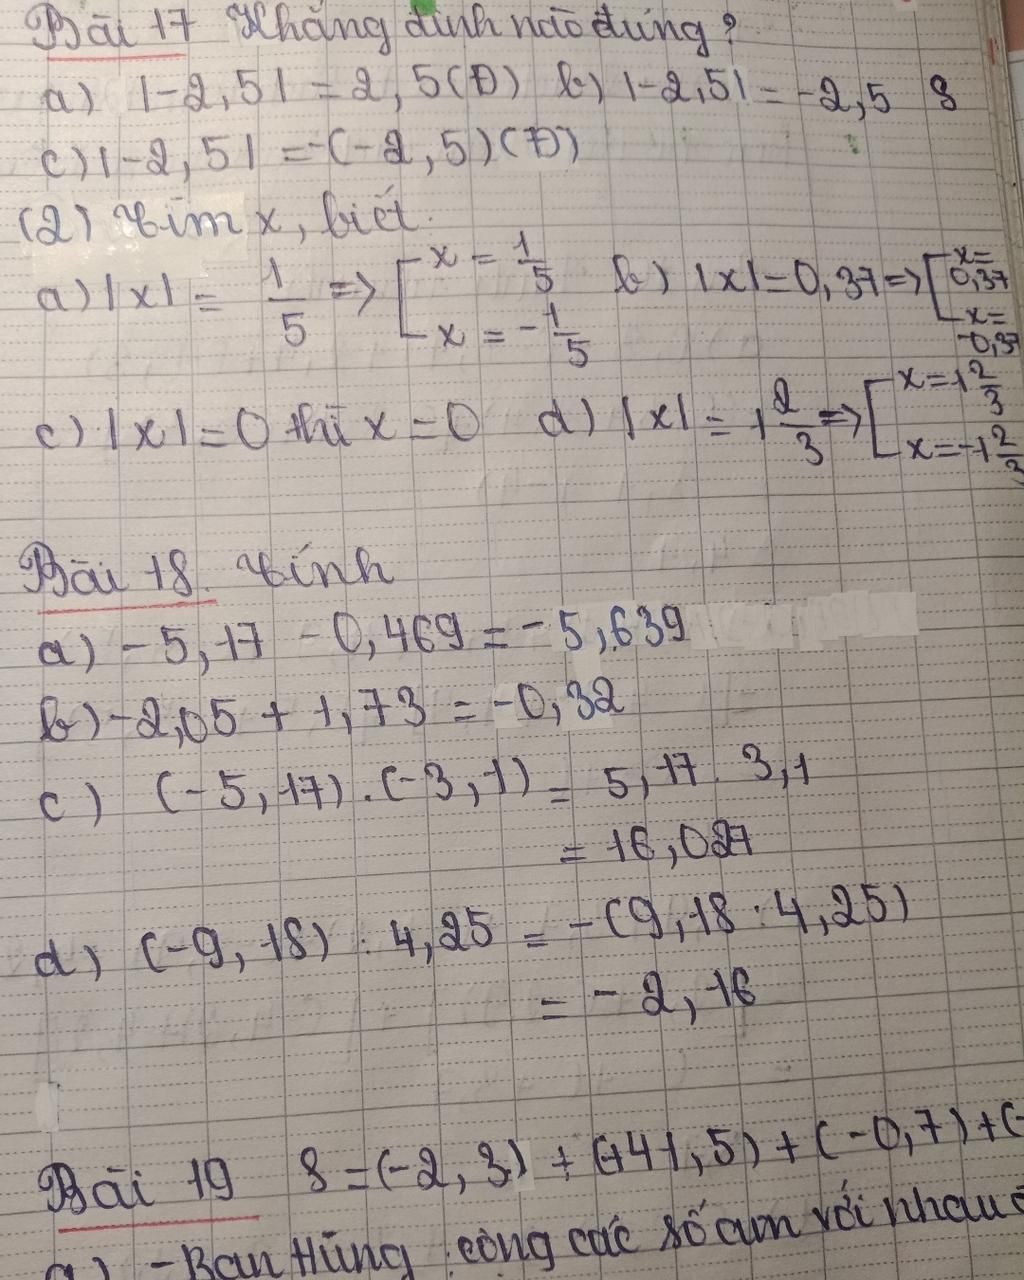 Bài 17 Khẳng định nào đúng?
a) |-2,5| = 2,5(Đ) b) |-2,5| = -2,5 S
c) |-2,5| = -(-2,5) (Đ)
(2) Tìm x, biết.
a) |x| = 1/5 => [ x = 1/5 ; x = -1/5 b) |x| = 0,37 => [ x = 0,37 ; x = -0,37
c) |x| = 0 thì x = 0 d) |x| = 1 2/3 => [ x = 1 2/3 ; x = -1 2/3
Bài 18. Tính
a) -5,17 - 0,469 = -5,639
b) -2,05 + 1,73 = -0,32
c) (-5,17) . (-3,1) = 5,17 . 3,1
= 16,027
d) (-9,18) : 4,25 = -(9,18 : 4,25)
= -2,16
Bài 19 S = (-2,3) + (+41,5) + (-0,7) + (-
a) - Bạn Hùng cộng các số âm với nhau